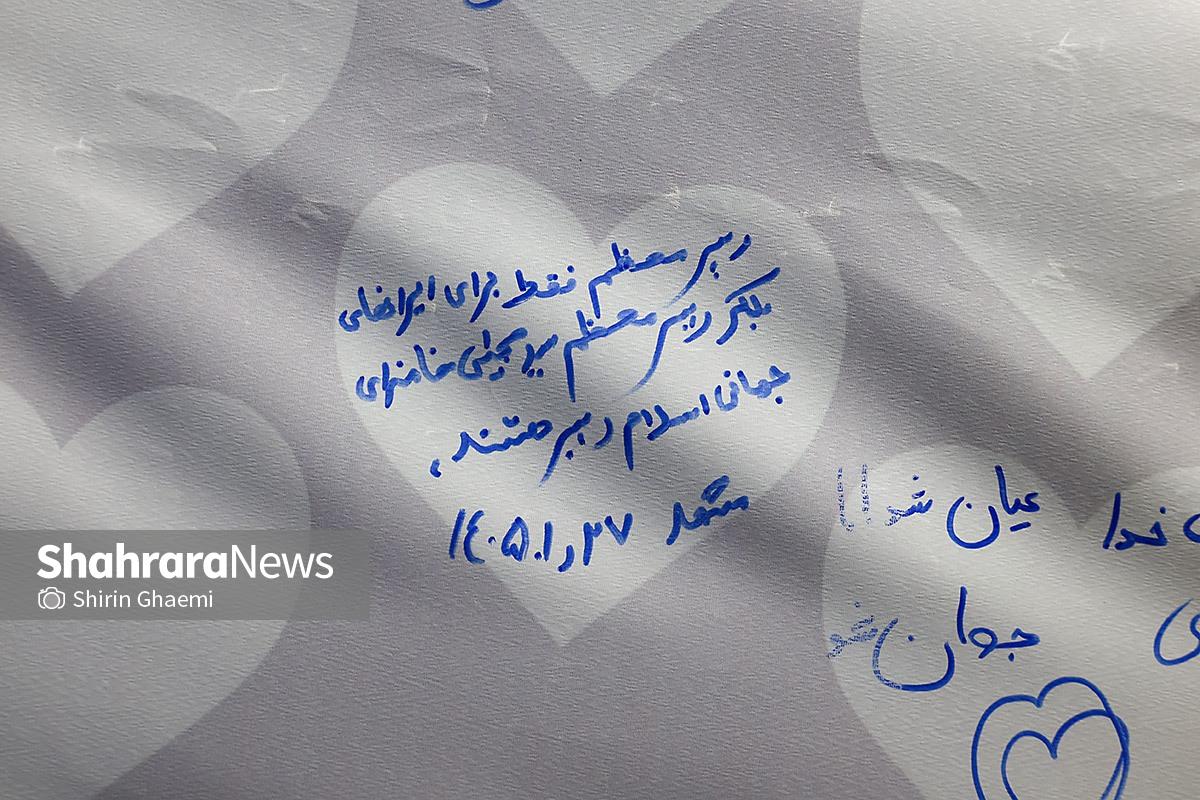 رهبر معظم فقط برای ایرانهای
بلکه رهبر معظم سید مجتبی خامنهای
جهان اسلام رهبر هستند،
مشهد ۲۷ ر ۱۴۰۵٫۰۱
عیان شد!!
خدا
جوان شد
ShahraraNews
Shirin Ghaemi